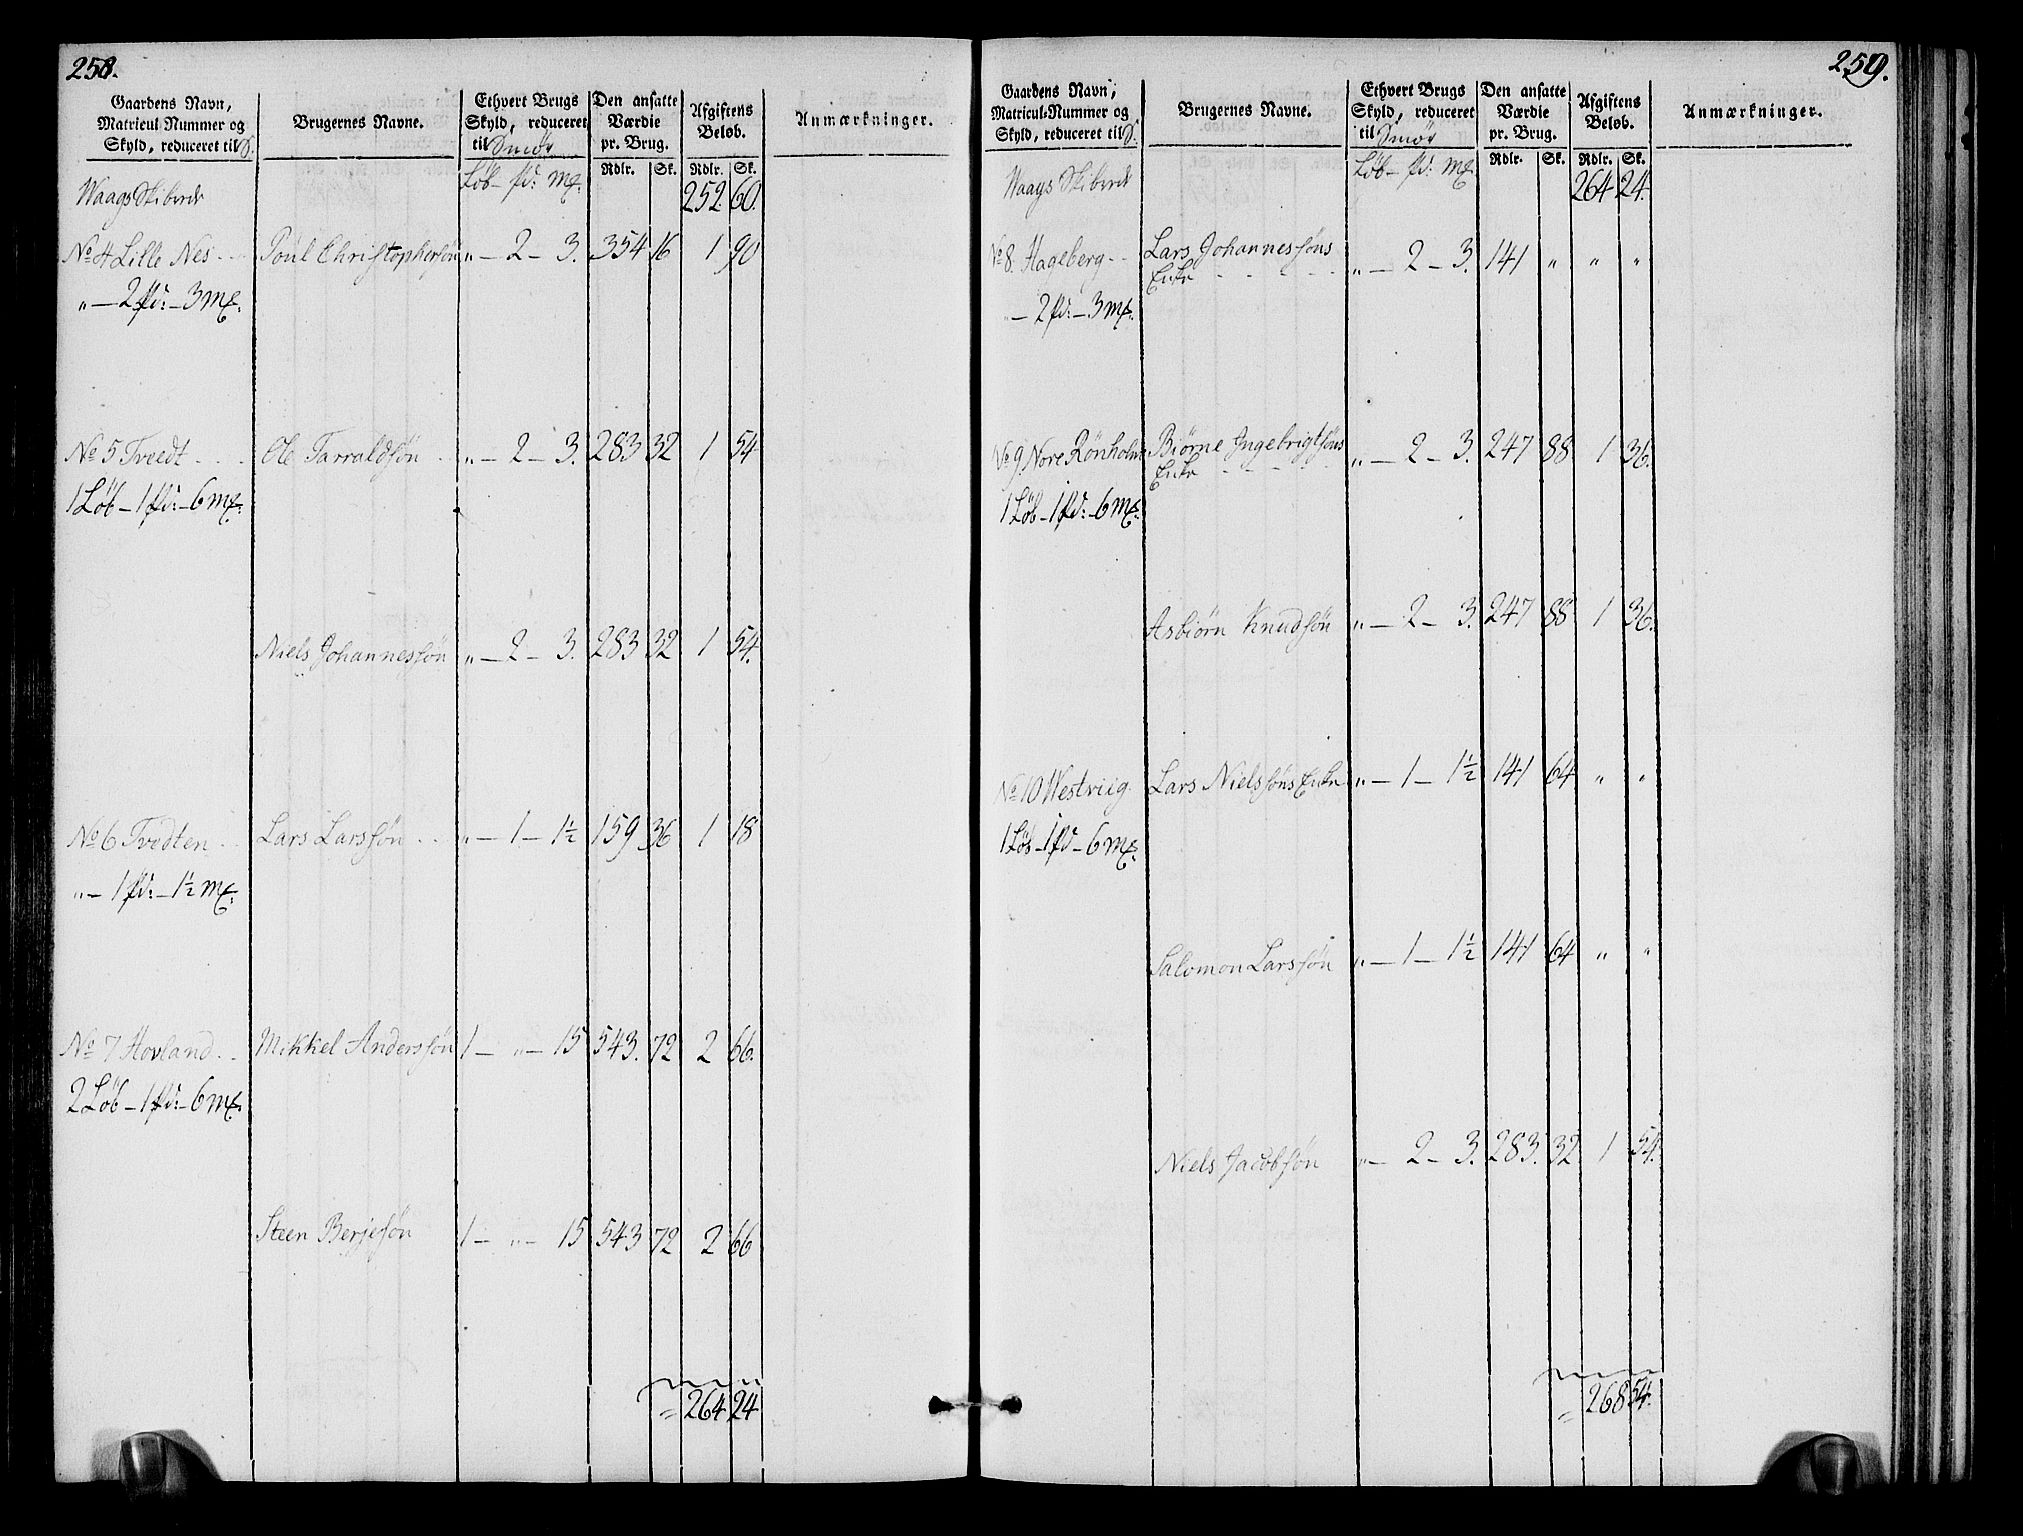 258.
Gaardens Navn, Matricul-Nummer og Skyld, reduceret til S. | Brugernes Navne. | Ethvert Brugs Skyld, reduceret til Smør | Den ansatte Værdie pr. Brug. | Afgiftens Beløb. | Anmærkninger.
Løb - pd: mk. | Rdlr. | Sk. | Rdlr. | Sk.
Waags Skibrede 252. 60.
No 4 Lille Nes - - Poul Christophersøn „ - 2 - 3. 354 16 1 90
„ - 2 pd: - 3 mk.
No 5 Tvedt - - - Ole Tarraldsøn - - „ - 2 - 3. 283 32 1 54
1 Løb - 1 pd: - 6 mk.
Niels Johannessøn „ - 2 - 3. 283 32 1 54.
No 6 Tvedten - Lars Larssøn - - „ - 1 - 1½ 159 36 1 18
„ - 1 pd: - 1½ mk.
No 7 Hovland - - Mikkel Anderssøn 1 - „ - 15 543. 72 2 66.
2 Løb - 1 pd: - 6 mk.
Steen Berjesøn 1 - „ - 15 543 72 2 66
= 264 24
259.
Gaardens Navn, Matricul-Nummer og Skyld, reduceret til S. | Brugernes Navne. | Ethvert Brugs Skyld, reduceret til Smør | Den ansatte Værdie pr. Brug. | Afgiftens Beløb. | Anmærkninger.
Løb - pd: mk | Rdlr. | Sk. | Rdlr. | Sk.
Waags Skibrede 264 24.
No 8. Hageberg - - Lars Johannessøns „ - 2 - 3. 141 „ „ „
Enke - - - -
„ - 2 pd: - 3 mk.
No 9. Nore Rönholm Biørne Ingebrigtsøns „ - 2 - 3. 247 88 1 36.
Enke - - - -
1 Løb - 1 pd: - 6 mk.
Asbiørn Knudsøn „ - 2 - 3. 247 88 1 36.
No 10 Westviig Lars Nielssøns Enke „ - 1 - 1½ 141 64 „ „
1 Løb - 1 pd - 6 mk.
Salomon Larssøn „ - 1 - 1½ 141 64 „ „
Niels Jacobsøn „ - 2 - 3. 283. 32 1 54.
= 268 54.